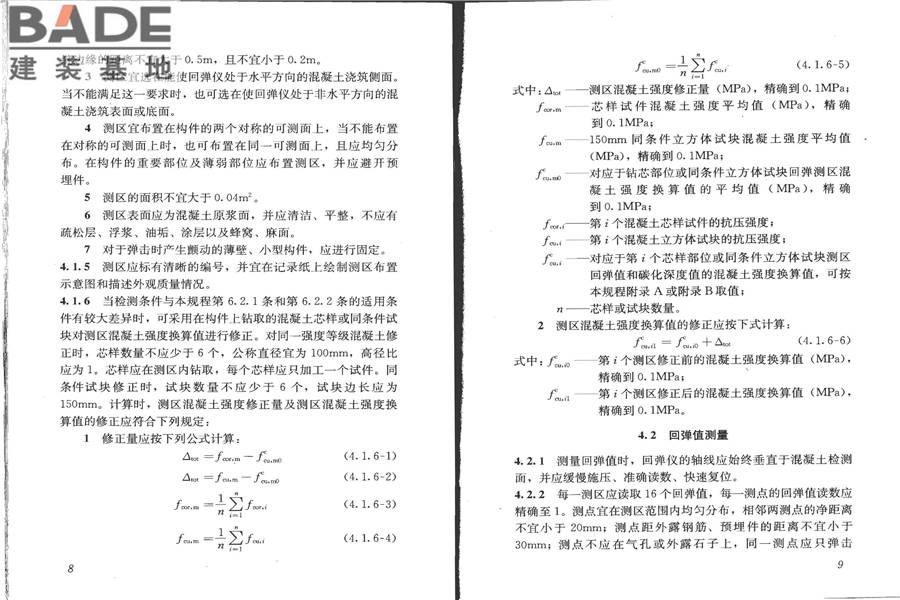 BADE
建装基地
边缘的距离不宜大于0.5m，且不宜小于0.2m。
3 测区宜选在能使回弹仪处于水平方向的混凝土浇筑侧面。
当不能满足这一要求时，也可选在使回弹仪处于非水平方向的混
凝土浇筑表面或底面。
4 测区宜布置在构件的两个对称的可测面上，当不能布置
在对称的可测面上时，也可布置在同一可测面上，且应均匀分
布。在构件的重要部位及薄弱部位应布置测区，并应避开预
埋件。
5 测区的面积不宜大于0.04m²。
6 测区表面应为混凝土原浆面，并应清洁、平整，不应有
疏松层、浮浆、油垢、涂层以及蜂窝、麻面。
7 对于弹击时产生颤动的薄壁、小型构件，应进行固定。
4.1.5 测区应标有清晰的编号，并宜在记录纸上绘制测区布置
示意图和描述外观质量情况。
4.1.6 当检测条件与本规程第6.2.1条和第6.2.2条的适用条
件有较大差异时，可采用在构件上钻取的混凝土芯样或同条件试
块对测区混凝土强度换算值进行修正。对同一强度等级混凝土修
正时，芯样数量不应少于6个，公称直径宜为100mm，高径比
应为1。芯样应在测区内钻取，每个芯样应只加工一个试件。同
条件试块修正时，试块数量不应少于6个，试块边长应为
150mm。计算时，测区混凝土强度修正量及测区混凝土强度换
算值的修正应符合下列规定：
1 修正量应按下列公式计算：
Δtot = fcor,m − f^c cu,m0 (4.1.6-1)
Δtot = fcu,m − f^c cu,m0 (4.1.6-2)
fcor,m = 1/n ∑(i=1→n) fcor,i (4.1.6-3)
fcu,m = 1/n ∑(i=1→n) fcu,i (4.1.6-4)
8
f^c cu,m0 = 1/n ∑(i=1→n) f^c cu,i (4.1.6-5)
式中：Δtot——测区混凝土强度修正量（MPa），精确到0.1MPa；
fcor,m——芯样试件混凝土强度平均值（MPa），精确
到0.1MPa；
fcu,m——150mm同条件立方体试块混凝土强度平均值
（MPa），精确到0.1MPa；
f^c cu,m0——对应于钻芯部位或同条件立方体试块回弹测区混
凝土强度换算值的平均值（MPa），精确
到0.1MPa；
fcor,i——第i个混凝土芯样试件的抗压强度；
fcu,i——第i个混凝土立方体试块的抗压强度；
f^c cu,i——对应于第i个芯样部位或同条件立方体试块测区
回弹值和碳化深度值的混凝土强度换算值，可按
本规程附录A或附录B取值；
n——芯样或试块数量。
2 测区混凝土强度换算值的修正应按下式计算：
f^c cu,i1 = f^c cu,i0 + Δtot (4.1.6-6)
式中：f^c cu,i0——第i个测区修正前的混凝土强度换算值（MPa），
精确到0.1MPa；
f^c cu,i1——第i个测区修正后的混凝土强度换算值（MPa），
精确到0.1MPa。
4.2 回弹值测量
4.2.1 测量回弹值时，回弹仪的轴线应始终垂直于混凝土检测
面，并应缓慢施压、准确读数、快速复位。
4.2.2 每一测区应读取16个回弹值，每一测点的回弹值读数应
精确至1。测点宜在测区范围内均匀分布，相邻两测点的净距离
不宜小于20mm；测点距外露钢筋、预埋件的距离不宜小于
30mm；测点不应在气孔或外露石子上，同一测点应只弹击
9